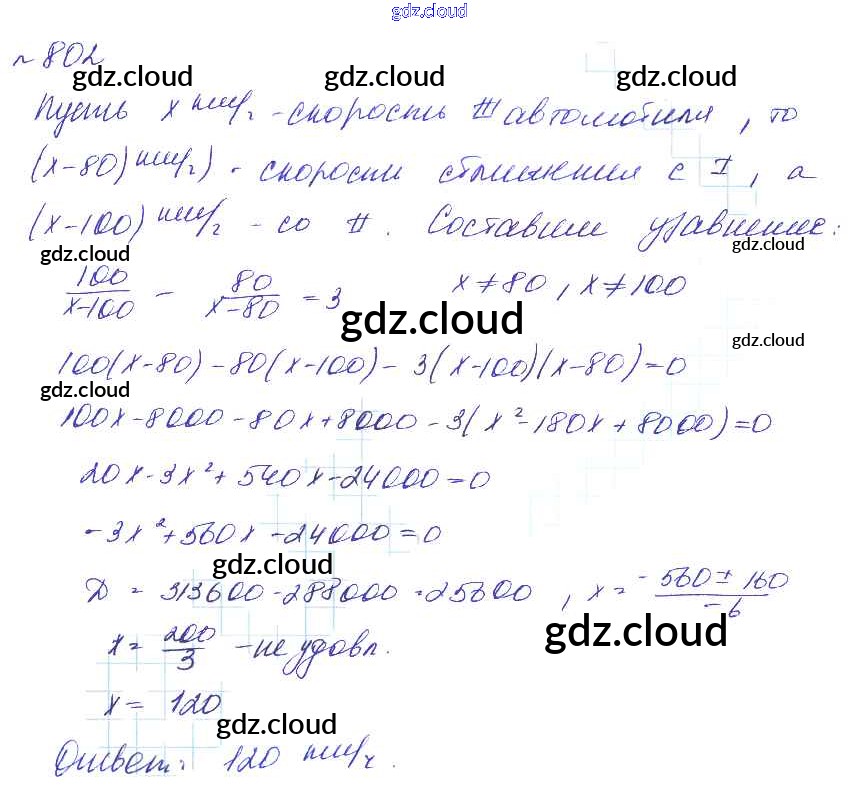 gdz.cloud
№ 802
gdz.cloud gdz.cloud
Пусть x км/ч - скорость III автомобиля, то
gdz.cloud gdz.cloud
(x-80) км/ч) - скорости сближения с I, а
(x-100) км/ч - со II. Составим уравнение:
gdz.cloud gdz.cloud
100/(x-100) - 80/(x-80) = 3 x≠80, x≠100
gdz.cloud
100(x-80)-80(x-100)-3(x-100)(x-80)=0
gdz.cloud gdz.cloud
100x-8000-80x+8000-3(x²-180x+8000)=0
20x-3x²+540x-24000=0
-3x²+560x-24000=0
gdz.cloud
D = 313600-288000=25600, x = (-560±160)/(-6)
gdz.cloud
x = 200/3 - не удовл.
x = 120
gdz.cloud
Ответ: 120 км/ч.
gdz.cloud